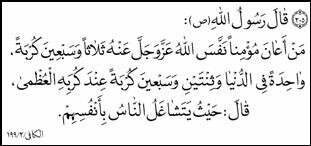 (٢٠٥) قَالَ رَسُولُ اللهِ (ص):
مَنْ أَعَانَ مُؤْمِناً نَفَّسَ اللهُ عَزَّ وَجَلَّ عَنْهُ ثَلَاثاً وَسَبْعِينَ كُرْبَةً،
وٰاحِدَةً فِي الدُّنْيَا وَثِنْتَيْنِ وَسَبْعِينَ كُرْبَةً عِنْدَ كُرَبِهِ الْعُظْمىٰ،
قَالَ: حَيْثُ يَتَشَاغَلُ النَّاسُ بِأَنْفُسِهِمْ.
الكافي/٢/١٩٩